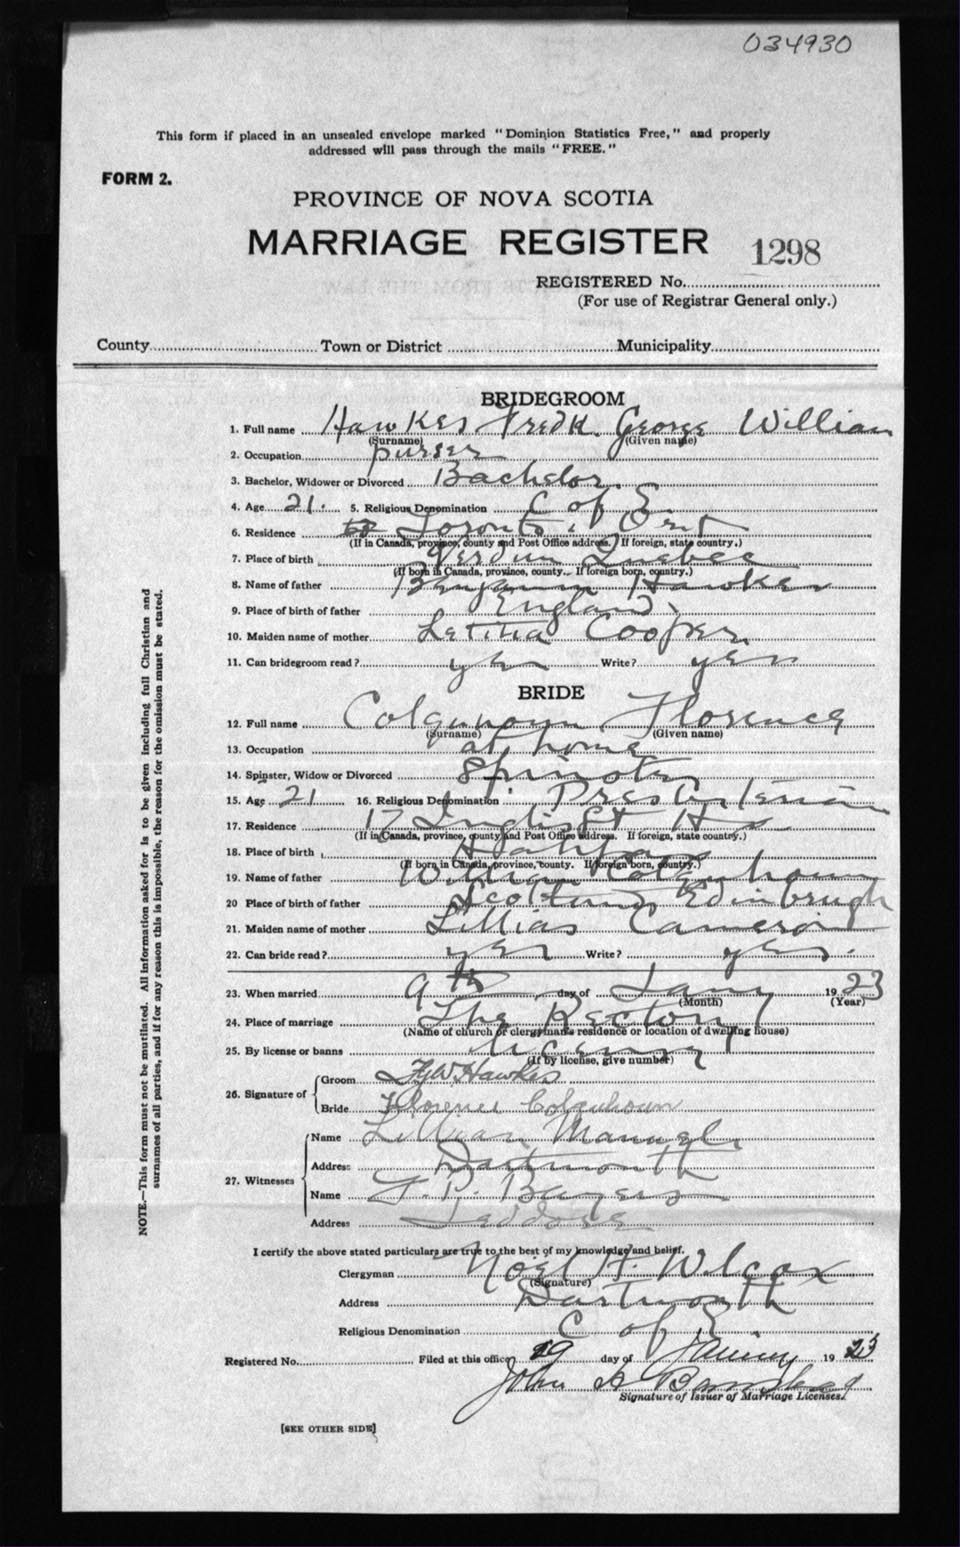 034930
This form if placed in an unsealed envelope marked "Dominion Statistics Free," and properly
addressed will pass through the mails "FREE."
FORM 2.
PROVINCE OF NOVA SCOTIA
MARRIAGE REGISTER 1298
REGISTERED No.
(For use of Registrar General only.)
County Town or District Municipality
BRIDEGROOM
1. Full name Hawkes Fredk. George William
(Surname) (Given name)
2. Occupation purser
3. Bachelor, Widower or Divorced Bachelor.
4. Age 21. 5. Religious Denomination C of E
6. Residence Toronto, Ont
(If in Canada, province, county and Post Office address. If foreign, state country.)
7. Place of birth Verdun Quebec
(If born in Canada, province, county. If foreign born, country.)
8. Name of father Benjamin Hawkes
9. Place of birth of father England
10. Maiden name of mother Letitia Cooper
11. Can bridegroom read? yes Write? yes
BRIDE
12. Full name Colquhoun Florence
(Surname) (Given name)
13. Occupation at home
14. Spinster, Widow or Divorced Spinster
15. Age 21 16. Religious Denomination Presbyterian
17. Residence 17 Inglis St Hx
(If in Canada, province, county and Post Office address. If foreign, state country.)
18. Place of birth Halifax
(If born in Canada, province, county. If foreign born, country.)
19. Name of father William Colquhoun
20 Place of birth of father Scotland Edinbrugh
21. Maiden name of mother Lillias Cameron
22. Can bride read? yes Write? yes.
23. When married 9th day of Jany 1923
(Month) (Year)
24. Place of marriage The Rectory
(Name of church or clergyman's residence or location of dwelling house)
25. By license or banns license
(If by license, give number)
26. Signature of Groom F G W Hawkes
Bride Florence Colquhoun
27. Witnesses Name Lillian
Address Dartmouth
Name F. P. Bayers
Address
I certify the above stated particulars are true to the best of my knowledge and belief.
Clergyman Noel H. Wilcox
(Signature)
Address Dartmouth
Religious Denomination C of E
Registered No. Filed at this office day of January 1923
John
Signature of Issuer of Marriage Licenses.
[SEE OTHER SIDE]
NOTE.—This form must not be mutilated. All information asked for is to be given including full Christian and
surnames of all parties, and if for any reason this is impossible, the reason for the omission must be stated.